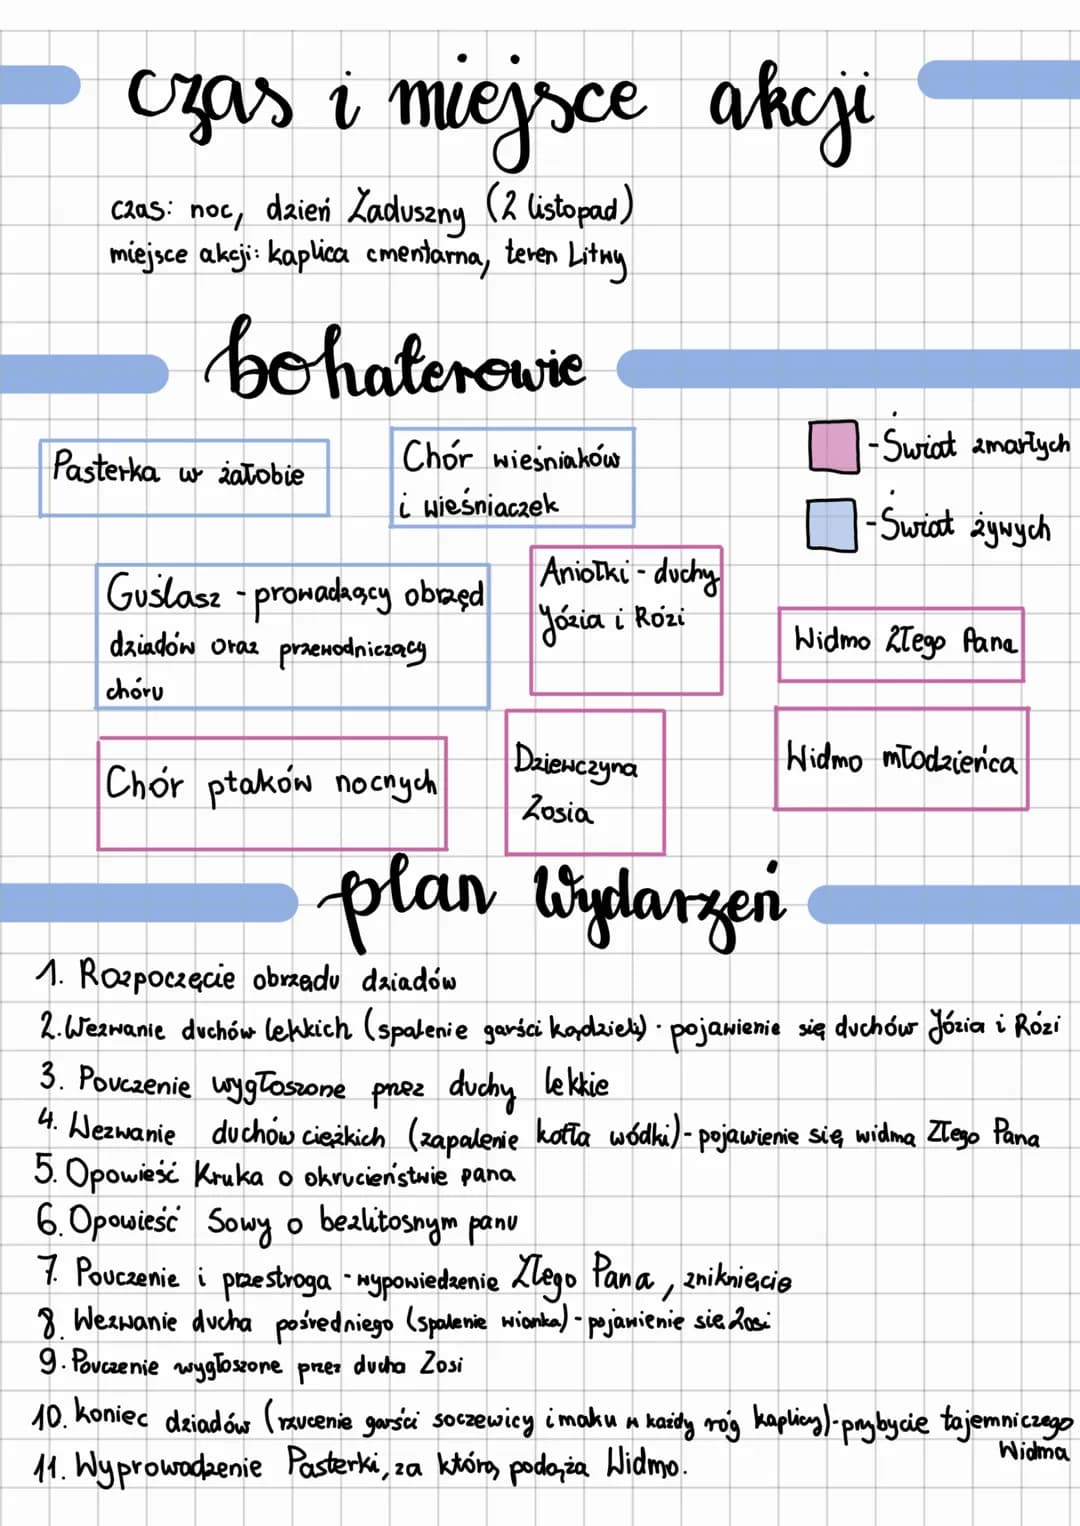 czas i miejsce akcji
czas: noc, dzień Zaduszny (2 listopad)
miejsce akcji: kaplica cmentarna, teren Litwy
bohaterowie
Pasterka w żałobie
Chór wieśniaków
i wieśniaczek
- Świat zmarłych
- Świat żywych
Guślasz - prowadzący obrzęd
dziadów oraz przewodniczący
chóru
Aniołki - duchy
Józia i Rózi
Widmo Złego Pana
Chór ptaków nocnych
Dziewczyna
Zosia
Widmo młodzieńca
plan wydarzeń
1. Rozpoczęcie obrzędu dziadów
2. Wezwanie duchów lekkich (spalenie garści kądzieli) - pojawienie się duchów Józia i Rózi
3. Pouczenie wygłoszone przez duchy lekkie
4. Wezwanie duchów ciężkich (zapalenie kotła wódki) - pojawienie się widma Złego Pana
5. Opowieść Kruka o okrucieństwie pana
6. Opowieść Sowy o bezlitosnym panu
7. Pouczenie i przestroga - wypowiedzenie Złego Pana, zniknięcie
8. Wezwanie ducha pośredniego (spalenie wianka) - pojawienie się Zosi
9. Pouczenie wygłoszone przez ducha Zosi
10. koniec dziadów (rzucenie garści soczewicy i maku w każdy róg kaplicy) - przybycie tajemniczego
Widma
11. Wyprowadzenie Pasterki, za którą podąża Widmo.